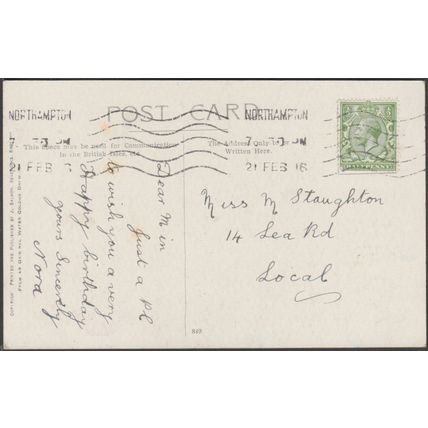 NORTHAMPTON
POST CARD
NORTHAMPTON
This space may be used for Communication
In the British Isles, etc
The Address Only to be
Written Here.
21 FEB
7 PM
21 FEB 16
Dear M in
Just a Pl
to wish you a very
Happy birthday
yours Sincerely
Nora
Miss M Staughton
14 Lea Rd
Local
COPYRIGHT PRINTED AND PUBLISHED BY J. SALMON, SEVENOAKS
FROM AN ORIGINAL WATER COLOUR DRAWING
849